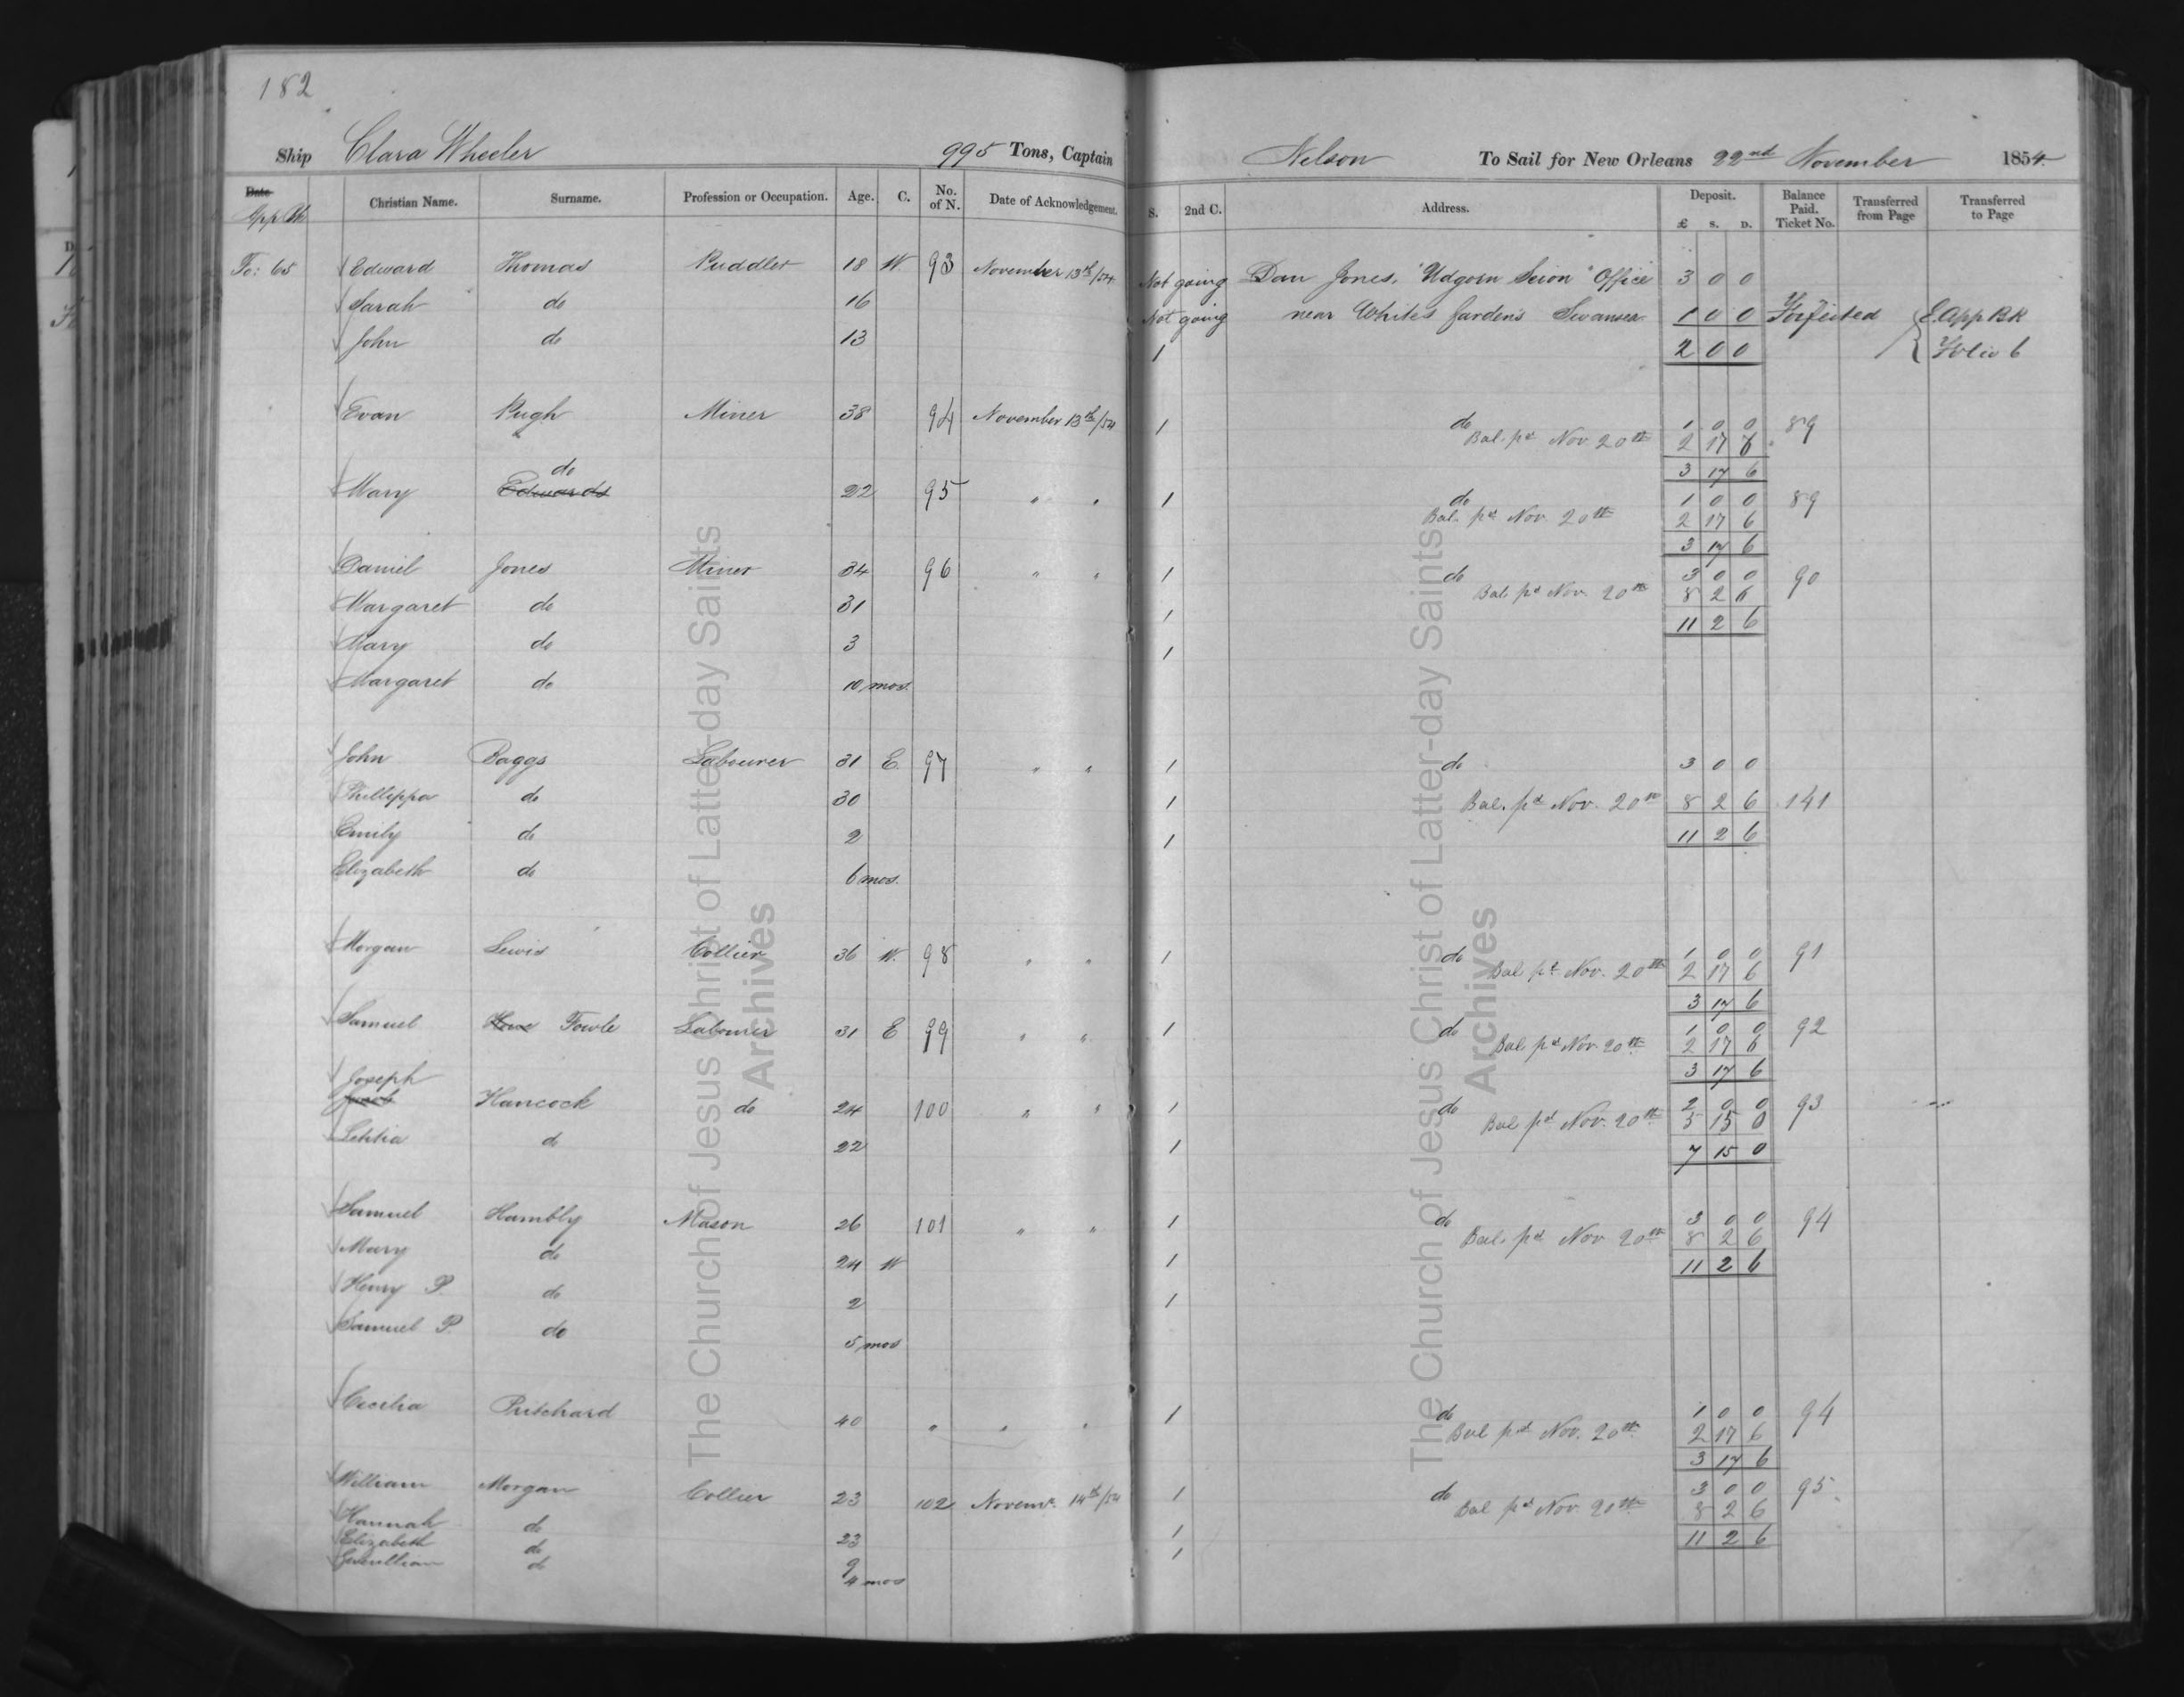 182
Ship Clara Wheeler 995 Tons, Captain Nelson To Sail for New Orleans 22nd November 1854
Date App Bk Christian Name. Surname. Profession or Occupation. Age. C. No. of N. Date of Acknowledgement. S. 2nd C. Address. Deposit. £ S. D. Balance Paid. Ticket No. Transferred from Page Transferred to Page
Fo: 65 Edward Thomas Puddler 18 W 93 November 13th/54 Not going Dan Jones, "Udgorn Seion" Office 3 0 0
Sarah do 16 Not going near White's Gardens Swansea 1 0 0 Forfeited E. App BK
John do 13 1 2 0 0 Folio 6
Evan Pugh Miner 38 94 November 13th/54 1 do 1 0 0 89
Bal. pd Nov. 20th 2 17 6
do 3 17 6
Mary Edwards 22 95 " " 1 do 1 0 0 89
Bal. pd Nov. 20th 2 17 6
3 17 6
Daniel Jones Miner 34 96 " " 1 do 3 0 0 90
Margaret do 31 1 Bal. pd Nov. 20th 8 2 6
11 2 6
Mary do 3 1
Margaret do 10 mos.
John Baggs Labourer 31 E. 97 " " 1 do 3 0 0
Phillippa do 30 1 Bal. pd Nov. 20th 8 2 6 141
Emily do 2 1 11 2 6
Elizabeth do 6 mos.
Morgan Lewis Collier 36 W. 98 " " 1 do 1 0 0 91
Bal pd Nov. 20th 2 17 6
3 17 6
Samuel Fowle Labourer 31 E 99 " " 1 do 1 0 0 92
Bal pd Nov. 20th 2 17 6
3 17 6
Joseph
Jacob Hancock do 24 100 " " 1 do 2 0 0 93
Bal pd Nov. 20th 5 15 0
Letitia do 22 1 7 15 0
Samuel Hambly Mason 26 101 " " 1 do 3 0 0 94
Bal. pd Nov 20th 8 2 6
Mary do 24 W 1 11 2 6
Henry P. do 2 1
Samuel P. do 5 mos
Cecelia Pritchard 40 " " " 1 do 1 0 0 94
Bal pd Nov. 20th 2 17 6
3 17 6
William Morgan Collier 23 102 Novemr. 14th/54 1 do 3 0 0 95
Bal pd Nov. 20th 8 2 6
Hannah do 23 1 11 2 6
Elizabeth do 9 1
Gwenllian do 4 mos
The Church of Jesus Christ of Latter-day Saints
Archives
The Church of Jesus Christ of Latter-day Saints
Archives